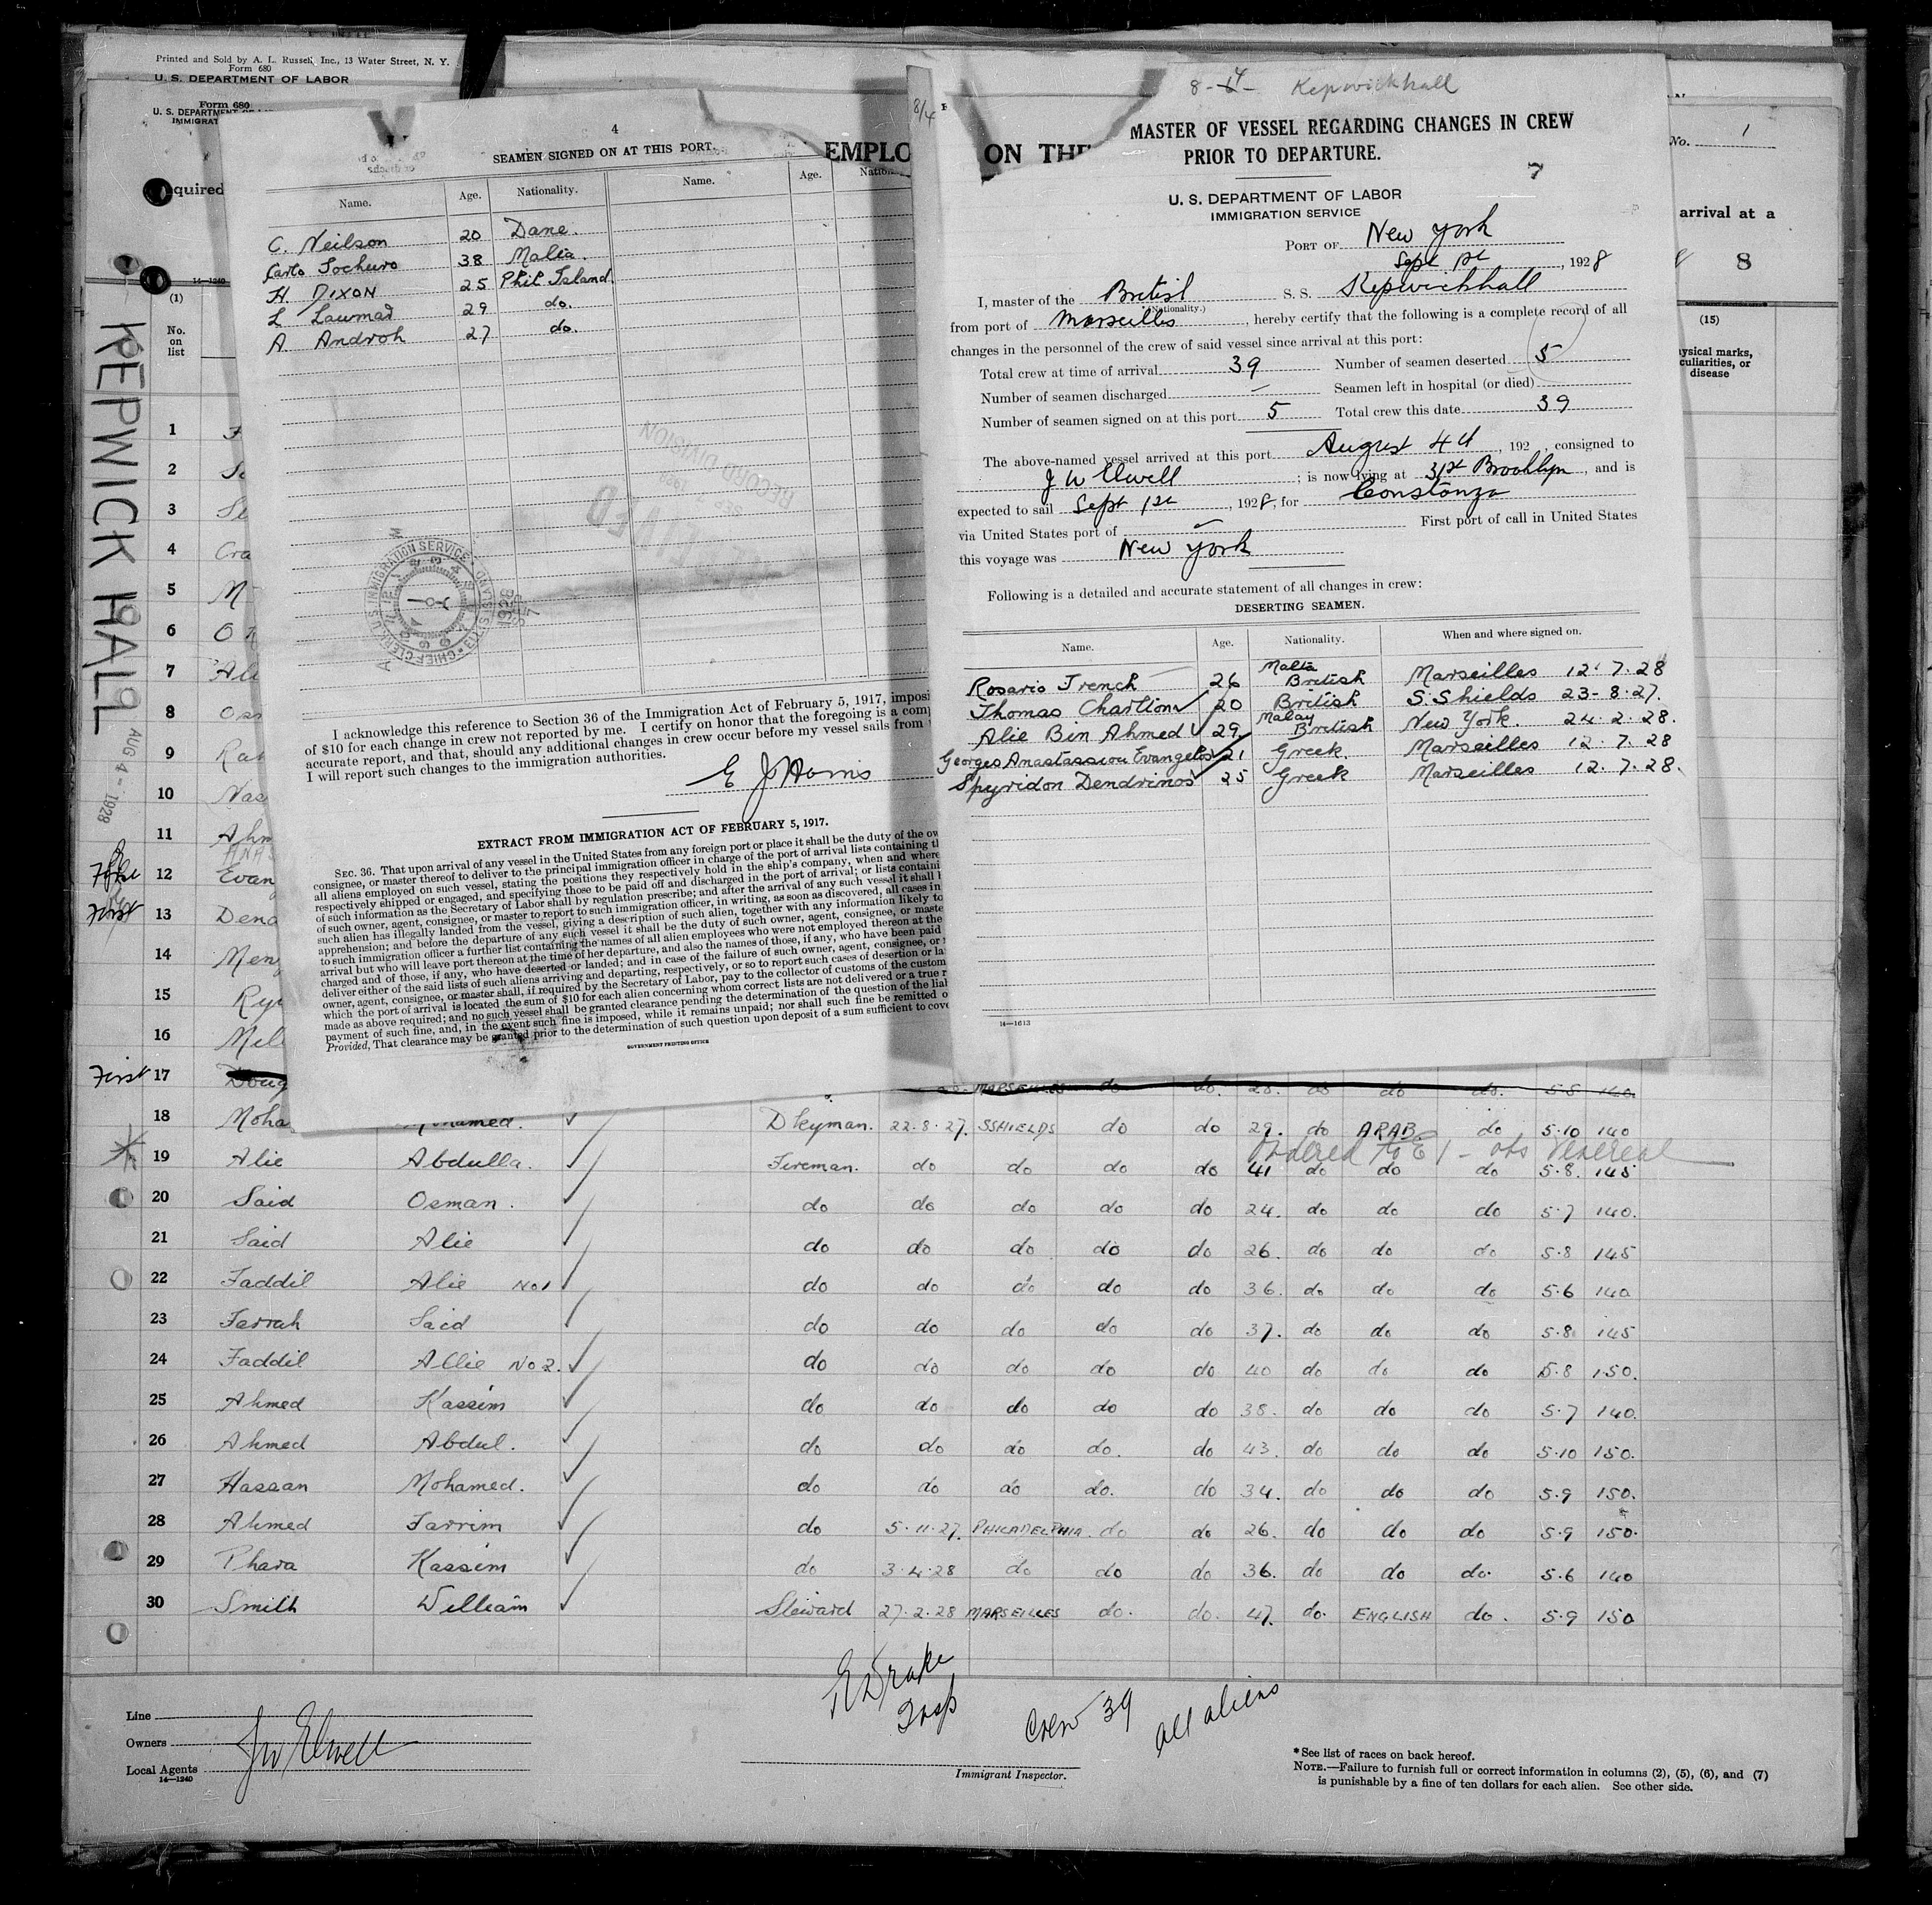 Printed and Sold by A. L. Russell, Inc., 13 Water Street, N. Y.
Form 680
U. S. DEPARTMENT OF LABOR
Form 680
U. S. DEPARTMENT OF LABOR
IMMIGRAT
quired
EMPLO
ON THE
No. 1
arrival at a
8
14—1240
(1)
No.
on
list
(15)
ysical marks,
culiarities, or
disease
KEPWICK HALL
AUG 4 - 1928
4
SEAMEN SIGNED ON AT THIS PORT.
Name. Age. Nationality. Name. Age. Nation
C. Neilson 20 Dane.
Carlo Sochuro 38 Malta.
H. DIXON 25 Phil Island.
L Laumad 29 do.
A. Androh 27 do.
RECEIVED
RECORD DIVISION
I acknowledge this reference to Section 36 of the Immigration Act of February 5, 1917, imposi
of $10 for each change in crew not reported by me. I certify on honor that the foregoing is a comp
accurate report, and that, should any additional changes in crew occur before my vessel sails from
I will report such changes to the immigration authorities.
E J Harris
EXTRACT FROM IMMIGRATION ACT OF FEBRUARY 5, 1917.
SEC. 36. That upon arrival of any vessel in the United States from any foreign port or place it shall be the duty of the ow
consignee, or master thereof to deliver to the principal immigration officer in charge of the port of arrival lists containing th
all aliens employed on such vessel, stating the positions they respectively hold in the ship's company, when and where
respectively shipped or engaged, and specifying those to be paid off and discharged in the port of arrival; or lists containi
of such information as the Secretary of Labor shall by regulation prescribe; and after the arrival of any such vessel it shall b
of such owner, agent, consignee, or master to report to such immigration officer, in writing, as soon as discovered, all cases in
such alien has illegally landed from the vessel, giving a description of such alien, together with any information likely to
apprehension; and before the departure of any such vessel it shall be the duty of such owner, agent, consignee, or maste
to such immigration officer a further list containing the names of all alien employees who were not employed thereon at the
arrival but who will leave port thereon at the time of her departure, and also the names of those, if any, who have been paid
charged and of those, if any, who have deserted or landed; and in case of the failure of such owner, agent, consignee, or
deliver either of the said lists of such aliens arriving and departing, respectively, or so to report such cases of desertion or la
owner, agent, consignee, or master shall, if required by the Secretary of Labor, pay to the collector of customs of the custom
which the port of arrival is located the sum of $10 for each alien concerning whom correct lists are not delivered or a true r
made as above required; and no such vessel shall be granted clearance pending the determination of the question of the lial
payment of such fine, and, in the event such fine is imposed, while it remains unpaid; nor shall such fine be remitted o
Provided, That clearance may be granted prior to the determination of such question upon deposit of a sum sufficient to cove
GOVERNMENT PRINTING OFFICE
8/4
8-14- Kepwickhall
MASTER OF VESSEL REGARDING CHANGES IN CREW
PRIOR TO DEPARTURE.
7
U. S. DEPARTMENT OF LABOR
IMMIGRATION SERVICE
PORT OF New York
Sept 1st, 1928
I, master of the British S. S. Kepwickhall
(Nationality.)
from port of Marseilles, hereby certify that the following is a complete record of all
changes in the personnel of the crew of said vessel since arrival at this port:
Total crew at time of arrival 39 Number of seamen deserted 5
Number of seamen discharged – Seamen left in hospital (or died)
Number of seamen signed on at this port 5 Total crew this date 39
The above-named vessel arrived at this port August 4th, 192 , consigned to
J W Elwell; is now lying at 31st Brooklyn, and is
expected to sail Sept 1st, 1928, for Constanza
via United States port of – First port of call in United States
this voyage was New York
Following is a detailed and accurate statement of all changes in crew:
DESERTING SEAMEN.
Name. Age. Nationality. When and where signed on.
Rosario French 26 Malta British Marseilles 12.7.28
Thomas Charlton 20 British S. Shields 23-8-27.
Alie Bin Ahmed 29. Malay British New York. 24.2.28.
Georges Anastassiou Evangelos 21 Greek. Marseilles 12.7.28
Spyridon Dendrinos 25 Greek Marseilles 12.7.28.
14—1613
1
2
3
4 Cra
5
6
7 Ali
8
9
10
11 Ahm
12 Evan
13 Dend
14
15
16
First 17 Doug MARSEILLES do do. 20. do do do. 5.8 140.
18 Moha Mohamed. Dkeyman. 22.8.27. SSHIELDS do do 29. do ARAB. do 5.10 140
19 Alie Abdulla. Fireman. do do do do 41 do do do 5.8. 145
20 Said Osman. do do do do do 24. do do do 5.7 140.
21 Said Alie do do do do do 26. do do do 5.8 145
22 Faddil Alie No 1 do do do do do 36. do do do 5.6 140
23 Farrah Said do do do do do 37. do do do 5.8 145
24 Faddil Allie No 2. do do do do do 40 do do do 5.8 150.
25 Ahmed Kassim do do do do do 38. do do do 5.7 140.
26 Ahmed Abdul. do do do do. do 43. do do do 5.10 150.
27 Hassan Mohamed. do do do do. do 34. do do do 5.9 150.
28 Ahmed Farrim do 5.11.27. PHILADELPHIA. do do 26. do do do 5.9 150.
29 Phara Kassim do 3.4.28 do do do 36. do do do. 5.6 140
30 Smith William Steward 27.2.28 MARSEILLES do. do. 47. do. ENGLISH do. 5.9 150
E Drake
Insp
Crew 39
all aliens
Line
Owners
Local Agents
JW Elwell
14—1240
Immigrant Inspector.
*See list of races on back hereof.
NOTE.—Failure to furnish full or correct information in columns (2), (5), (6), and (7)
is punishable by a fine of ten dollars for each alien. See other side.